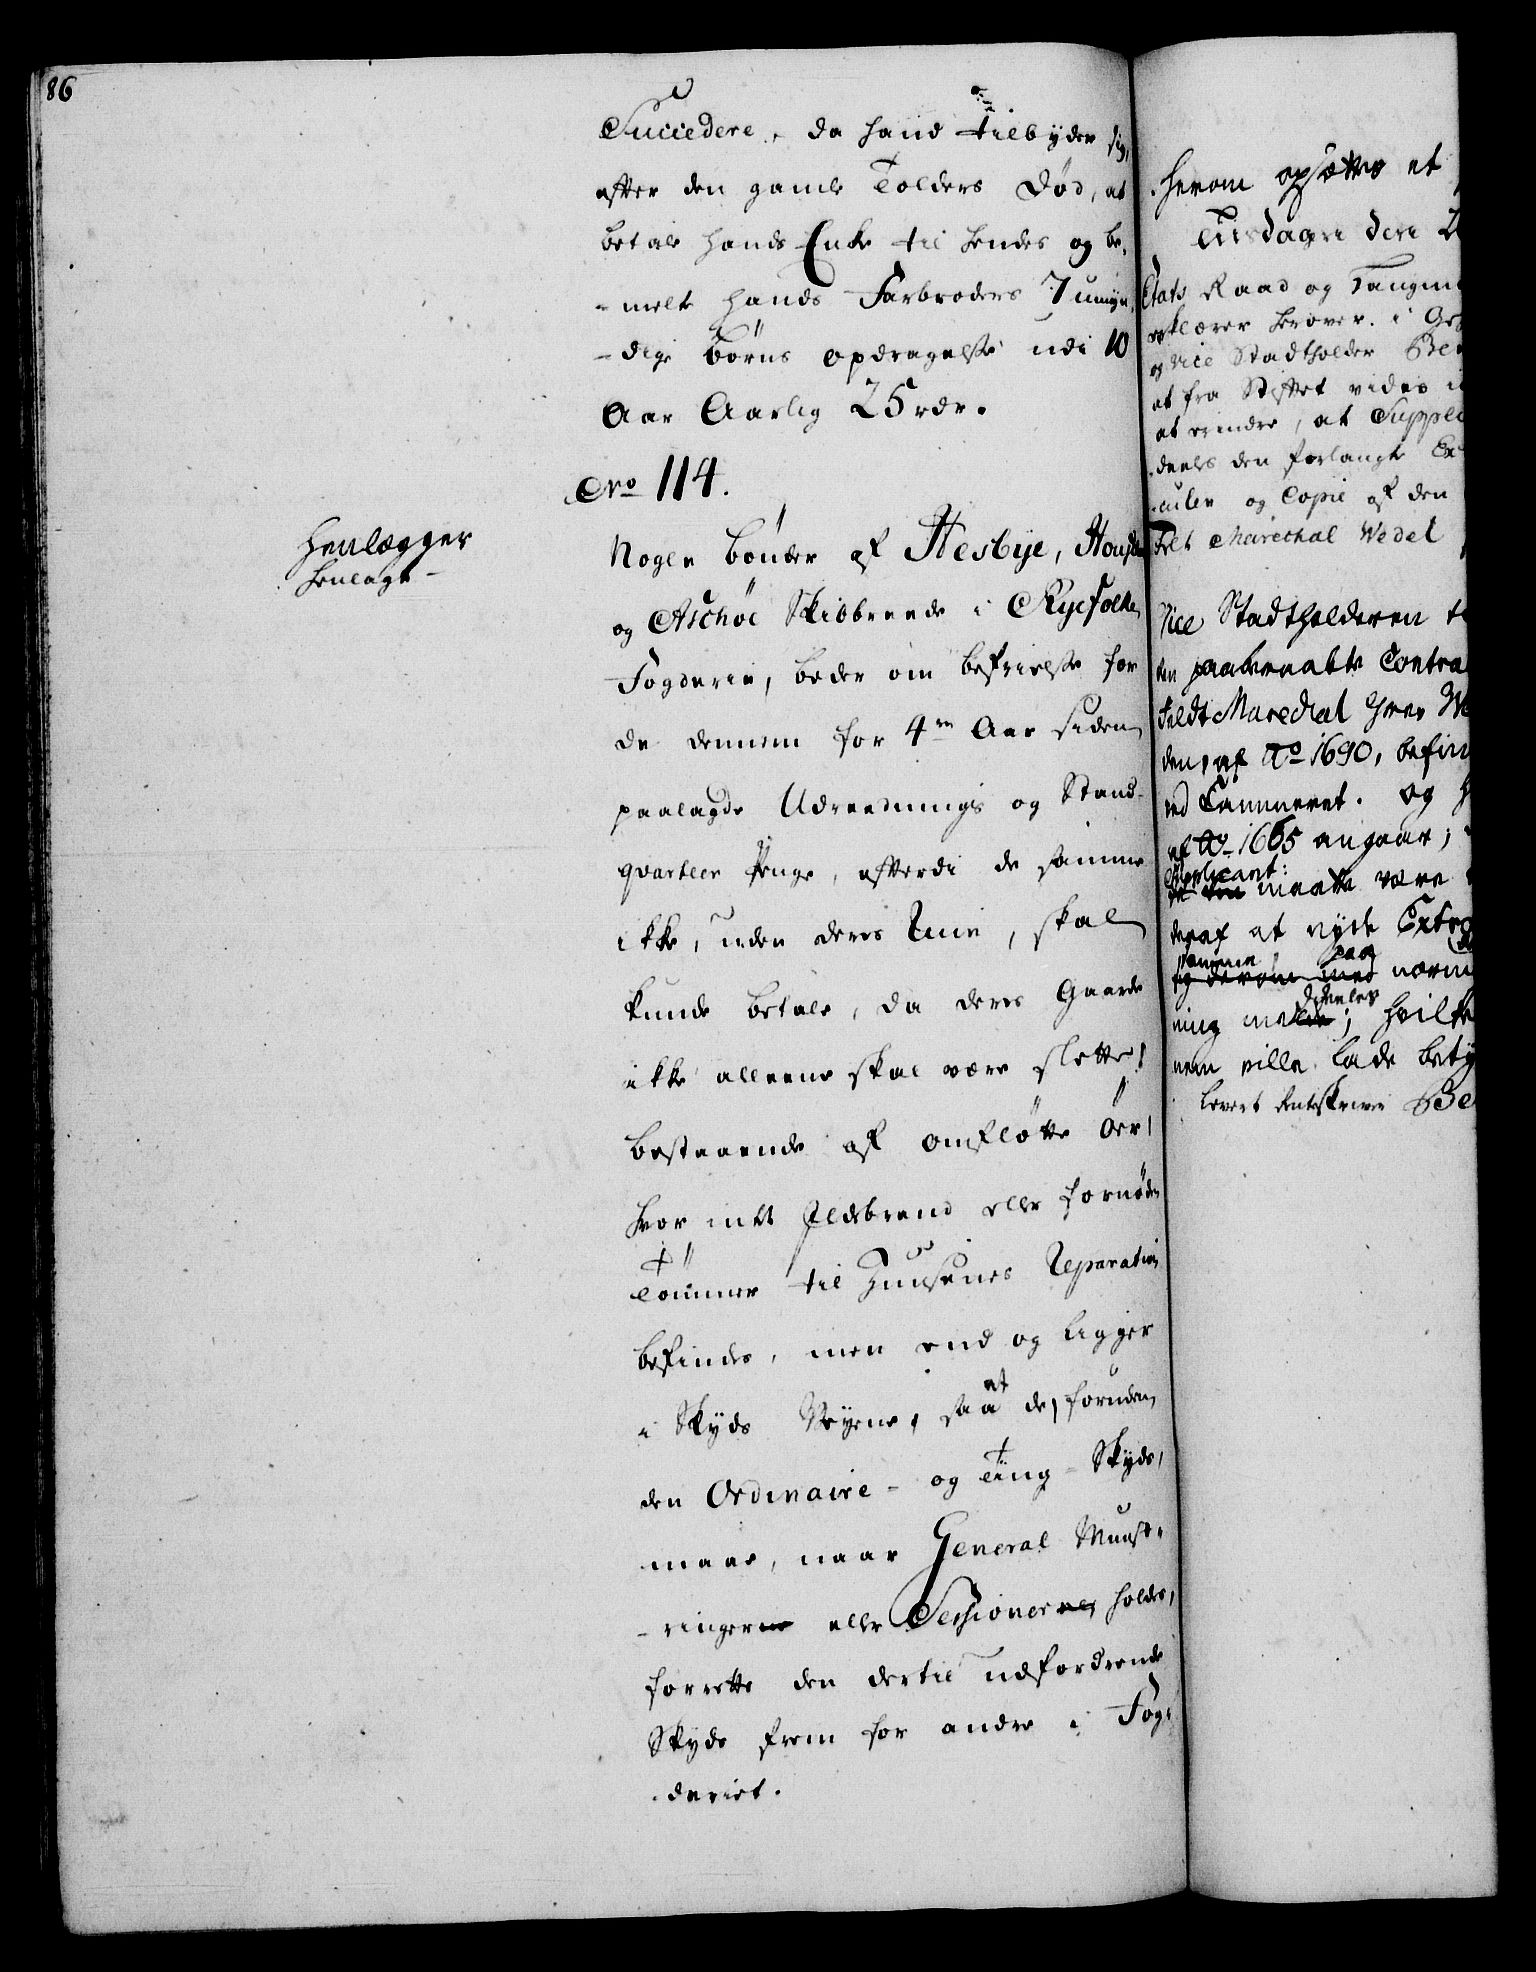 86
Succedere, da hand tilbyder sig,
efter den gamle Tolders Død, at
betale hands Enke til hendes og be-
-melte hands Farbroders 7 umyn-
-dige Børns opdragelse udi 10
Aar Aarlig 25 rdr.
No 114.
Henlægges
henlagt -
Nogle bønder af Hesbye,
og Aschøe Skibbreede i Ryefolke
Fogderie, beder om befrielse for
de dennem for 4re Aar siden
paalagde Udreednings og Stand-
quarteer Penge, efterdi de samme
ikke, uden deres Ruin, skal
kunde betale, da deres Gaarde
ikke alleene skal være slette,
bestaaende af omfløtte Öer,
hvor intet Ildebrand eller fornøden
Tømmer til Huusenes Reparation
befindes, men end og ligger
i Skyds Veyene, saa at de, foruden
den Ordinaire- og Ting-Skyds,
maae, naar General Munst-
-ringerne eller Sessionerne holdes,
forrette den dertil udfordrende
Skyds frem for andre i Fog-
-deriet.
herom opsættes et
Tiisdagen den 2
Etats Raad og
erklærer herover. i
og Vice Stadtholder Be
at fra Stiftet vides i
at erindre, at Suppli
deels den forlangte Ex
og Copie af den
Felt Marechal Wedel
Vice Stadtholderen t
den paaberaabte Contra
Feldt Marechal Herr We
den, af Ao 1690, befin
ved Cammeret. og h
af Ao 1665 angaar;
Supplicant:
maatte være
deraf at nyde Extra
samme paa
og derom med nærm
ning melde; hvilke
nem ville lade bety
levert Renteskriver Be